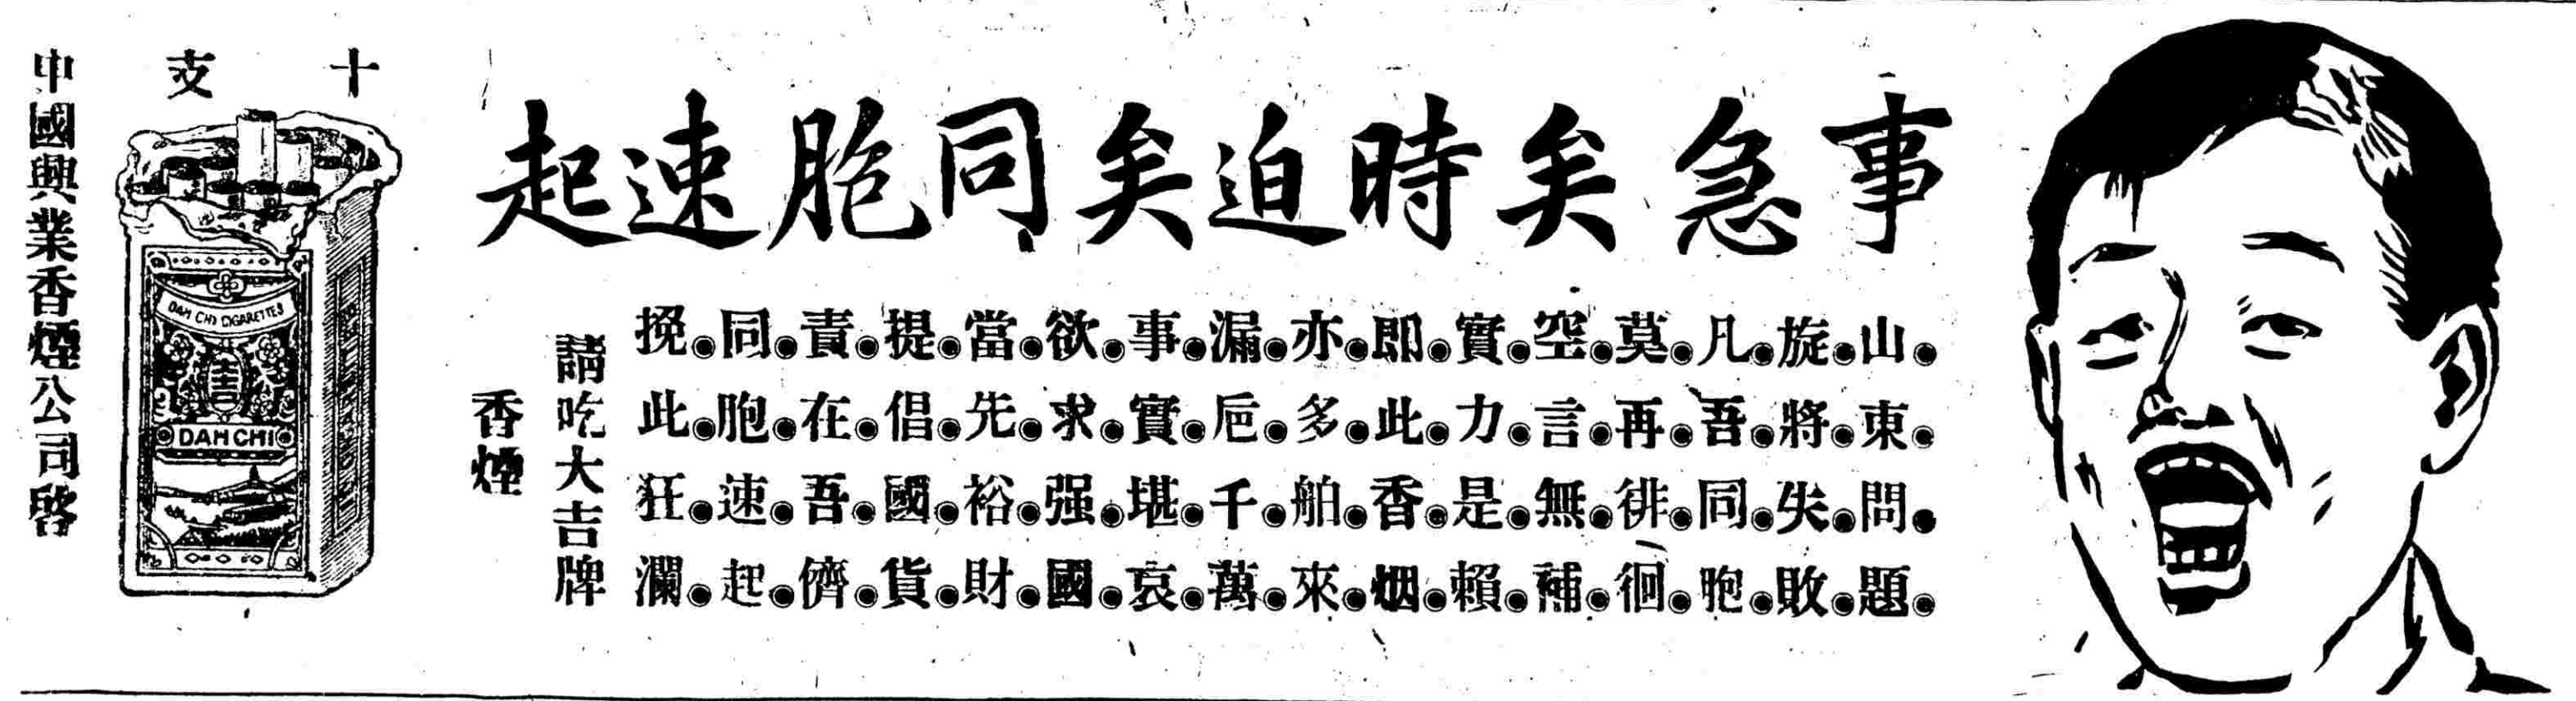 事急矣時迫矣同胞速起
山東問題
旋將失敗
凡吾同胞
莫再徘徊
空言無補
實力是賴
即此香烟
亦多舶來
漏巵千萬
事實堪哀
欲求强國
當先裕財
提倡國貨
責在吾儕
同胞速起
挽此狂瀾
請吃大吉牌
香煙
十支
DAH CHI CIGARETTES
大吉
DAH CHI
中國興業香煙公司啓